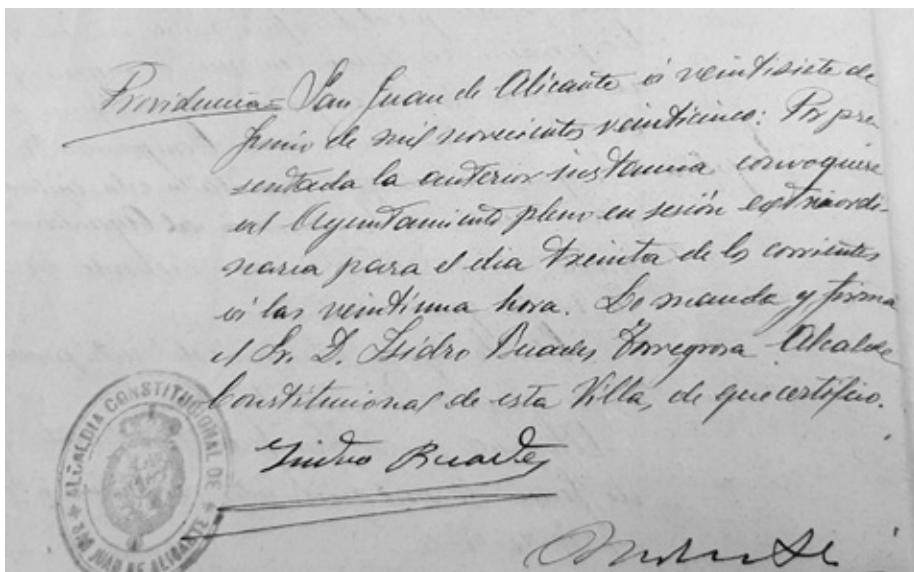 Providencia = San Juan de Alicante á veintisiete de
Junio de mil novecientos veinticinco: Por pre
sentada la anterior instancia convoquese
al Ayuntamiento pleno en sesión extraordi-
naria para el dia treinta de los corrientes
á las veintiuna hora. Lo manda y firma
el Sr. D. Isidro Buades Torregrosa Alcalde
Constitucional de esta Villa, de que certifico.
Isidro Buades
ALCALDIA CONSTITUCIONAL DE
SAN JUAN DE ALICANTE